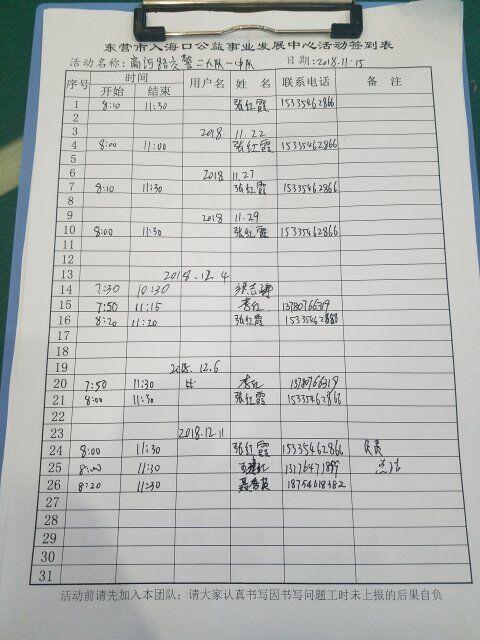 东营市入海口公益事业发展中心活动签到表
活动名称：商河路交警二大队一中队 日期：2018.11.15
序号 时间 用户名 姓 名 联系电话 备 注
开始 结束
1 8:10 11:30 张红霞 15335462866
2
3 2018 11.22
4 8:00 11:00 张红霞 15335462866
5
6 2018 11.27
7 8:10 11:30 张红霞 15335462866
8
9 2018 11.29
10 8:00 11:30 张红霞 15335462866
11
12
13 2018.12.4
14 7:30 10:30
15 7:50 11:15 李红 13780766319
16 8:20 11:20 张红霞 15335462866
17
18
19 2018.12.6
20 7:50 11:30 李红 13780766319
21 8:00 11:30 张红霞 15335462866
22
23 2018.12.11
24 8:00 11:30 张红霞 15335462866 负责
25 8:00 11:30 13176471899 总结
26 8:20 11:30 18754618382
27
28
29
30
31
活动前请先加入本团队；请大家认真书写因书写问题工时未上报的后果自负